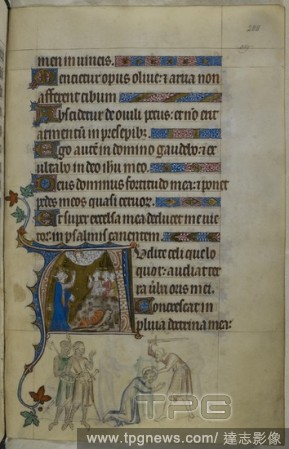 men in vineis.
Mencietur opus oliue: ⁊ arua non
afferent cibum
Abscidetur de ouili pecus: et nō erit
armentū in presepibȝ.
Ego autē in domino gaudebo: ⁊ ex
ultabo in deo ihū meo.
Deus dominus fortitudo mea: ⁊ ponet
pedes meos quasi ceruorum.
Et super excelsa mea deducet me uic
tor: in psalmis canentem.
Audite celi que lo
quor: audiat ter
ra uba oris mei.
Concrescat in
pluuia doctrina mea:
TPG
www.tpgnews.com/ 達志影像